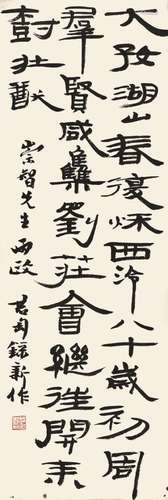 大好湖山春復秋西泠八十歲初周
羣賢咸集劉莊會繼往開來
壯猷
崇智先生兩政
錄新作